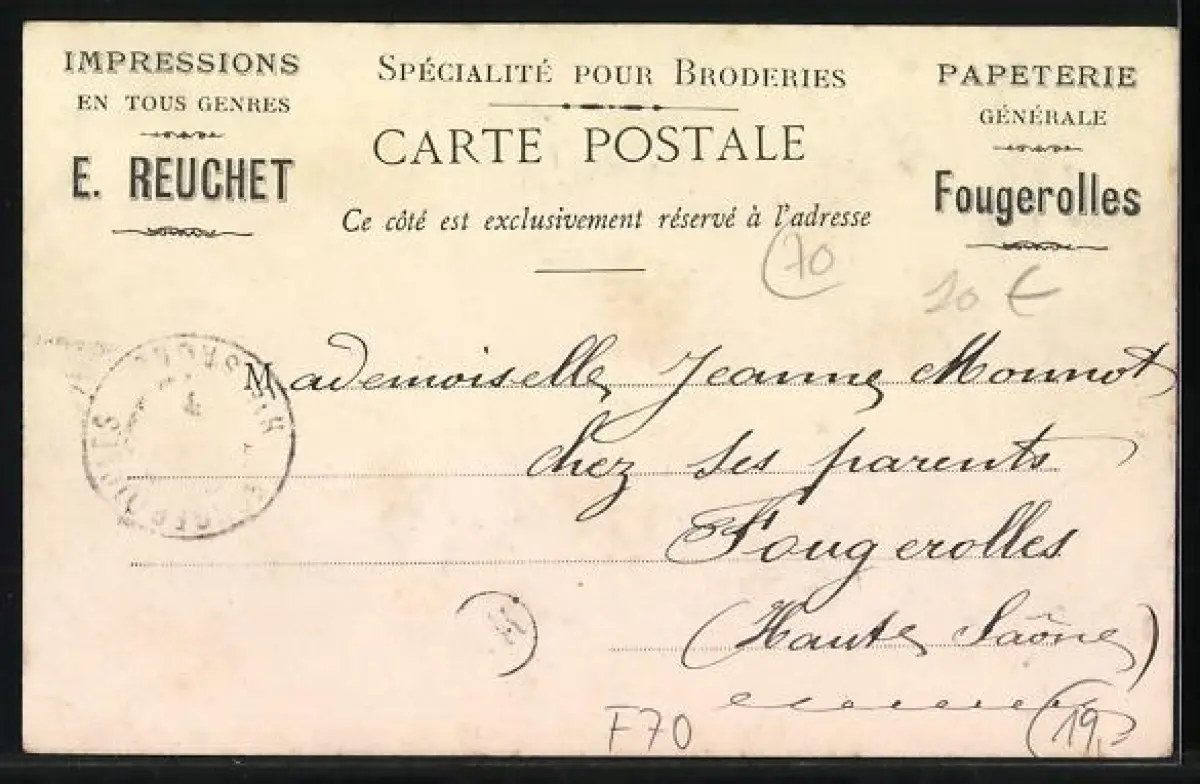 IMPRESSIONS
EN TOUS GENRES
E. REUCHET
SPÉCIALITÉ POUR BRODERIES
CARTE POSTALE
Ce côté est exclusivement réservé à l'adresse
PAPETERIE
GÉNÉRALE
Fougerolles
70
20 €
Mademoiselle Jeanne Monnot
chez ses parents
Fougerolles
(Haute Saône)
F70
(19,-)